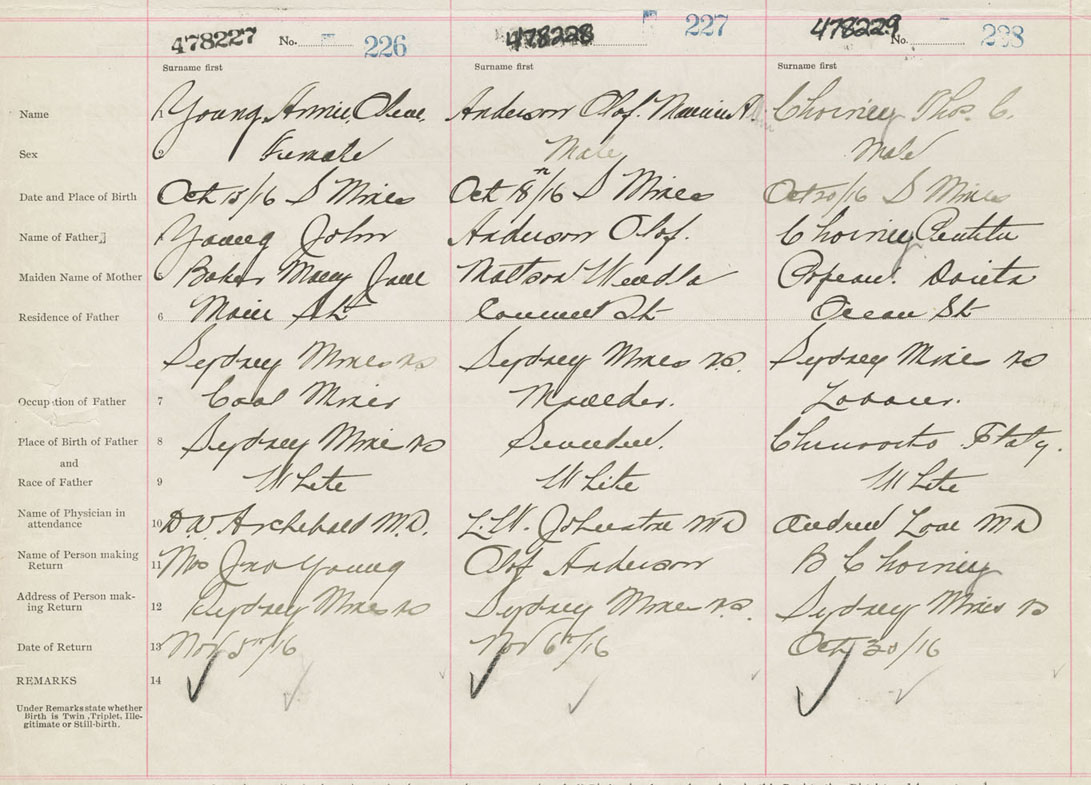 478227 No. 226 478228 227 478229 No. 228
Surname first Surname first Surname first
Name 1 Young, Annie, Anderson Olof. Choiney Thos. C.
Sex 2 Female Male Male
Date and Place of Birth Oct 15/16 S Mines Oct 18/16 S Mines Oct 20/16 S Mines
Name of Father Young John Anderson Olof. Choiney
Maiden Name of Mother 5 Baker Mary Jane Mattson
Residence of Father 6 Main St St Ocean St
Sydney Mines NS Sydney Mines NS. Sydney Mine NS
Occupation of Father 7 Coal Miner Moulder. Labour.
Place of Birth of Father 8 Sydney Mine NS Sweden. Italy.
and
Race of Father 9 White White White
Name of Physician in
attendance 10 D.W. Archibald M.D. L.W. Johnstone MD Andrew Love MD
Name of Person making
Return 11 Mrs Jno Young Olof Anderson B Choiney
Address of Person mak-
ing Return 12 Sydney Mines NS Sydney Mines NS. Sydney Mines NS
Date of Return 13 Nov 5th/16 Nov 6th/16 Oct 30/16
REMARKS 14
Under Remarks state whether
Birth is Twin, Triplet, Ille-
gitimate or Still-birth.